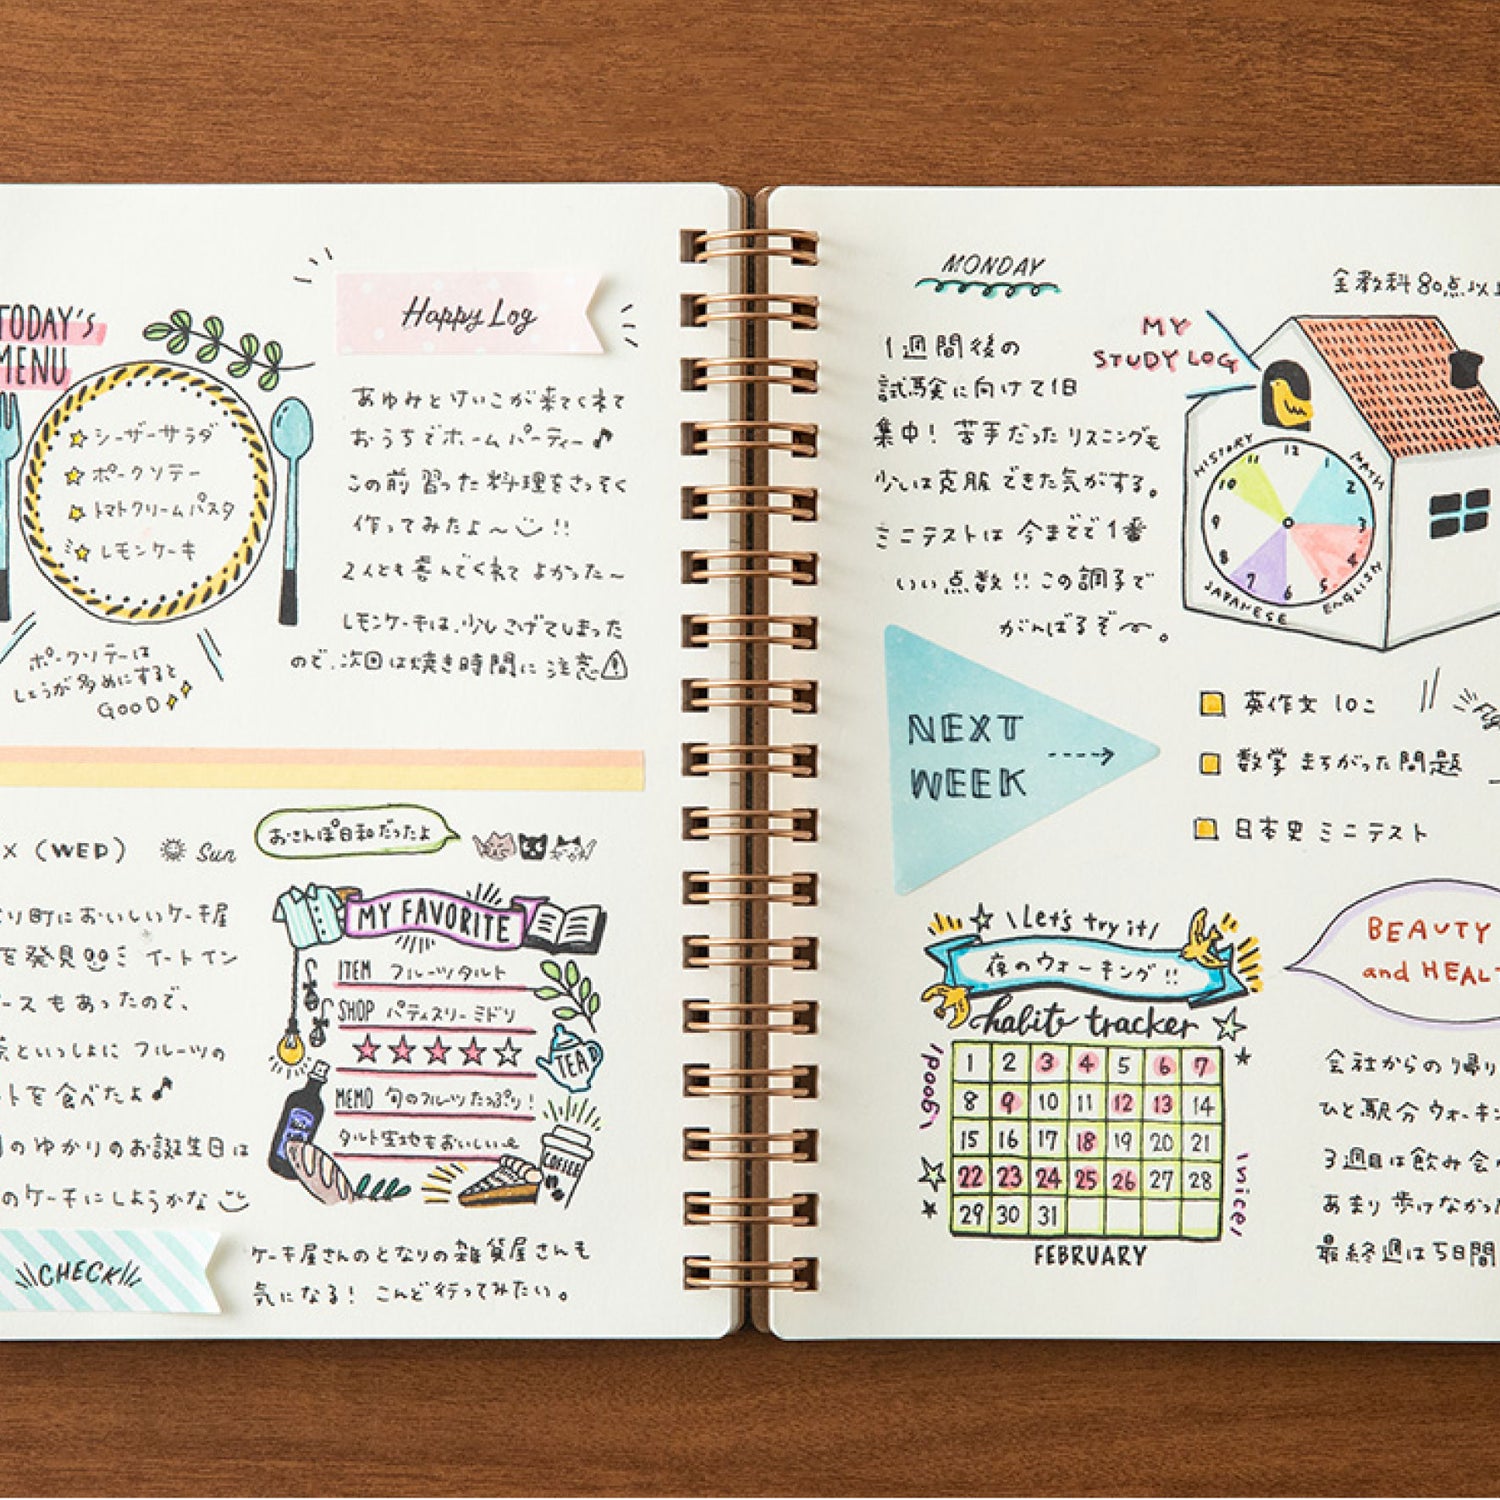 TODAY'S
MENU
シーザーサラダ
ポークソテー
トマトクリームパスタ
レモンケーキ
ポークソテーは
しょうが多めにすると
GOOD
Happy Log
あゆみとけいこが来てくれて
おうちでホームパーティー♪
この前習った料理をさっそく
作ってみたよ〜!!
2人とも喜んでくれてよかった〜
レモンケーキは、少しこげてしまった
ので、次回は焼き時間に注意
x (WED)
Sun
おさんぽ日和だったよ
り町においしいケーキ屋
を発見 イートイン
ースもあったので、
茶といっしょにフルーツの
トを食べたよ♪
のゆかりのお誕生日は
のケーキにしようかな
MY FAVORITE
ITEM フルーツタルト
SHOP パティスリーミドリ
★★★★☆
TEA
MEMO 旬のフルーツたっぷり!
タルト生地もおいしい
COFFEE
CHECK
ケーキ屋さんのとなりの雑貨屋さんも
気になる! こんど行ってみたい。
MONDAY
1週間後の
試験に向けて1日
集中! 苦手だったリスニングも
少しは克服できた気がする。
ミニテストは今までで1番
いい点数!!この調子で
がんばるぞ〜。
MY
STUDY LOG
全教科80点以上
HISTORY
MATH
ENGLISH
JAPANESE
12
1
2
3
4
5
6
7
8
9
10
11
NEXT
WEEK
英作文 10こ
数学 まちがった問題
日本史 ミニテスト
Let's try it
夜のウォーキング!!
habit tracker
good
1 2 3 4 5 6 7
8 9 10 11 12 13 14
15 16 17 18 19 20 21
22 23 24 25 26 27 28
29 30 31
nice!
FEBRUARY
BEAUTY
and HEALT
会社からの帰り
ひと駅分ウォーキ
3週目は飲み会
あまり歩けなかっ
最終週は5日間